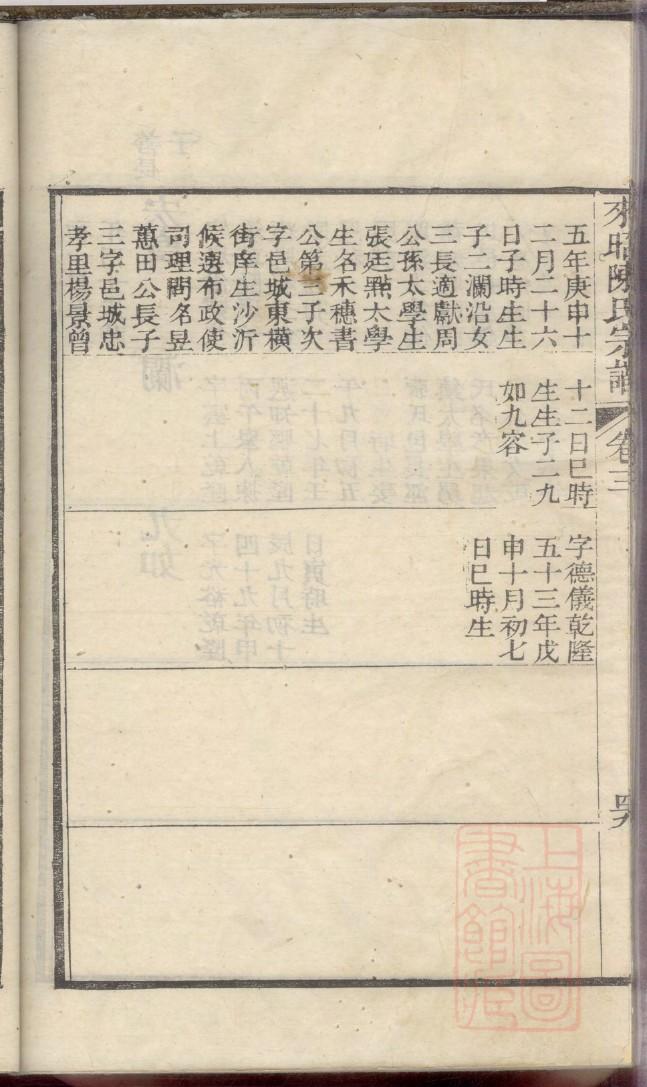 陳氏宗譜
卷三
五年庚申十
二月二十六
日子時生生
子二瀾沿女
三長適獻周
公孫太學生
張廷點太學
生名禾穗書
公第三子次
字邑城東橫
街庠生沙沂
候選布政使
司理問名昱
蕙田公長子
三字邑城忠
孝里楊景曾
十二日巳時
生生子二九
如九容
字德儀乾隆
五十三年戊
申十月初七
日巳時生
上海圖
書館藏